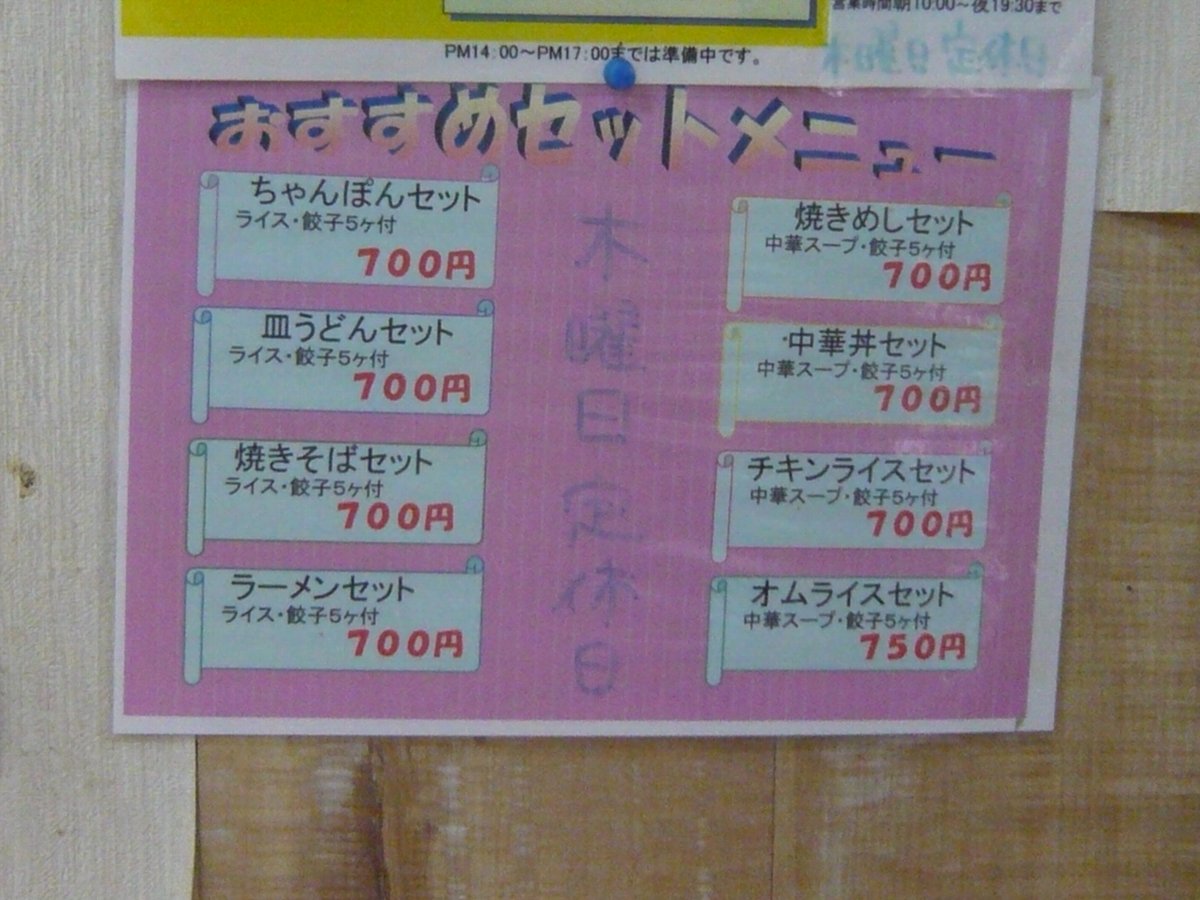 営業時間朝10:00～夜19:30まで
PM14:00～PM17:00までは準備中です。
木曜日定休日
おすすめセットメニュー
ちゃんぽんセット
ライス・餃子5ヶ付
700円
皿うどんセット
ライス・餃子5ヶ付
700円
焼きそばセット
ライス・餃子5ヶ付
700円
ラーメンセット
ライス・餃子5ヶ付
700円
木曜日定休日
焼きめしセット
中華スープ・餃子5ヶ付
700円
中華丼セット
中華スープ・餃子5ヶ付
700円
チキンライスセット
中華スープ・餃子5ヶ付
700円
オムライスセット
中華スープ・餃子5ヶ付
750円